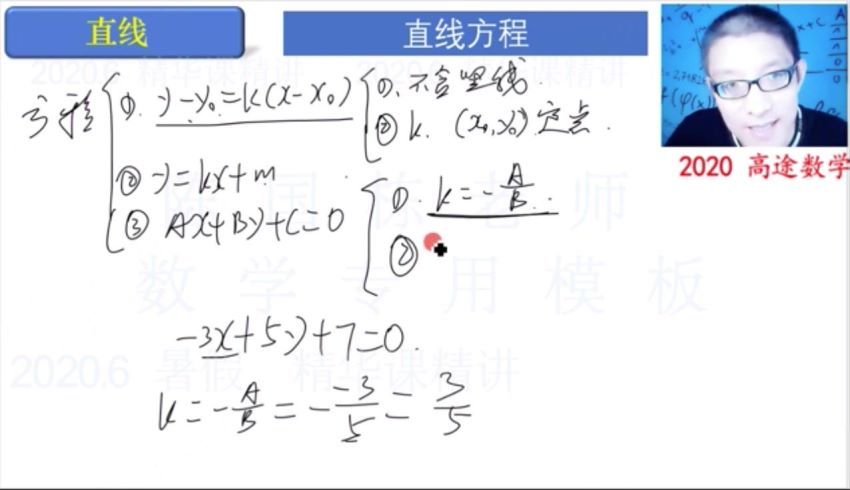 直线
直线方程
2020.6 精华课精讲
方程
①. y-y₀=k(x-x₀)
①. 不含竖线.
② k. (x₀,y₀) 定点.
② y=kx+m
③ Ax+By+C=0
①. k=-A/B.
②
2020 高途数学
国栋老师
数学专用模板
-3x+5y+7=0.
2020.6 暑假 精华课精讲
k=-A/B=-(-3)/5=3/5